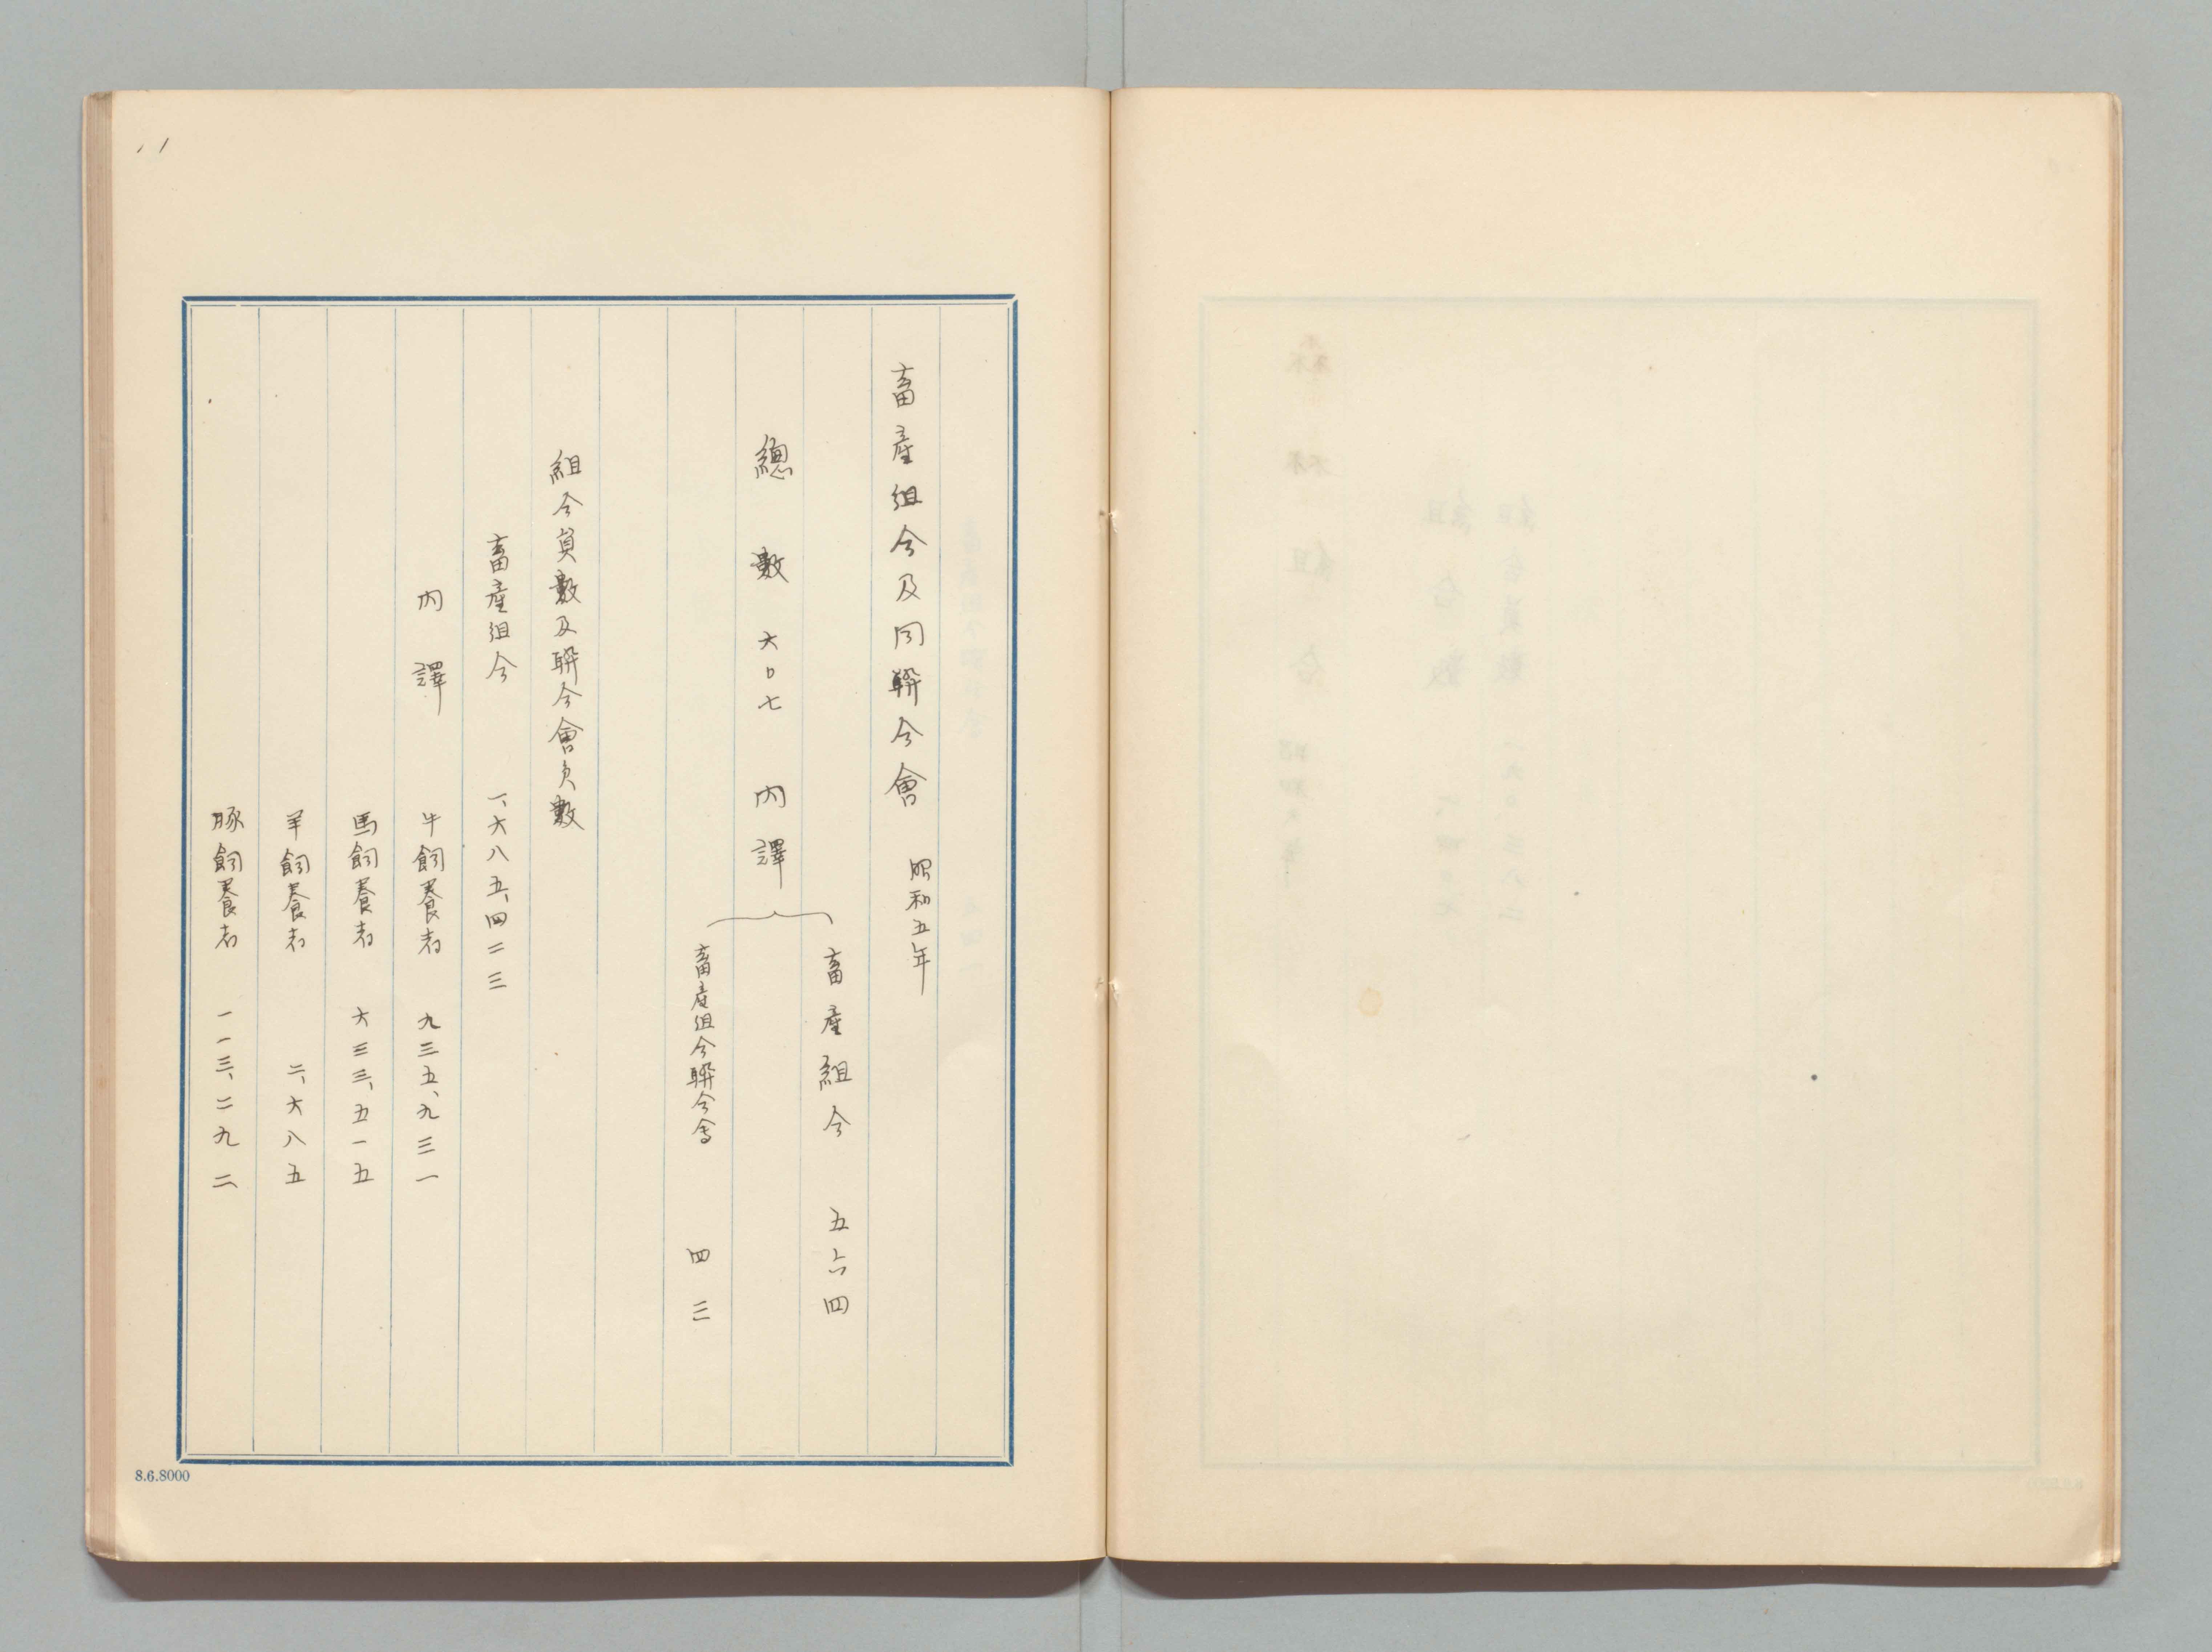 畜産組合及同聯合會 昭和五年
畜産組合 五六四
總數 六〇七 內譯
畜産組合聯合会 四三
組合員數及聯合會員數
畜産組合 一、六八五、四二三
內譯 牛飼養者 九三五、九三一
馬飼養者 六三三、五一五
羊飼養者 二、六八五
豚飼養者 一一三、二九二
8.6.8000